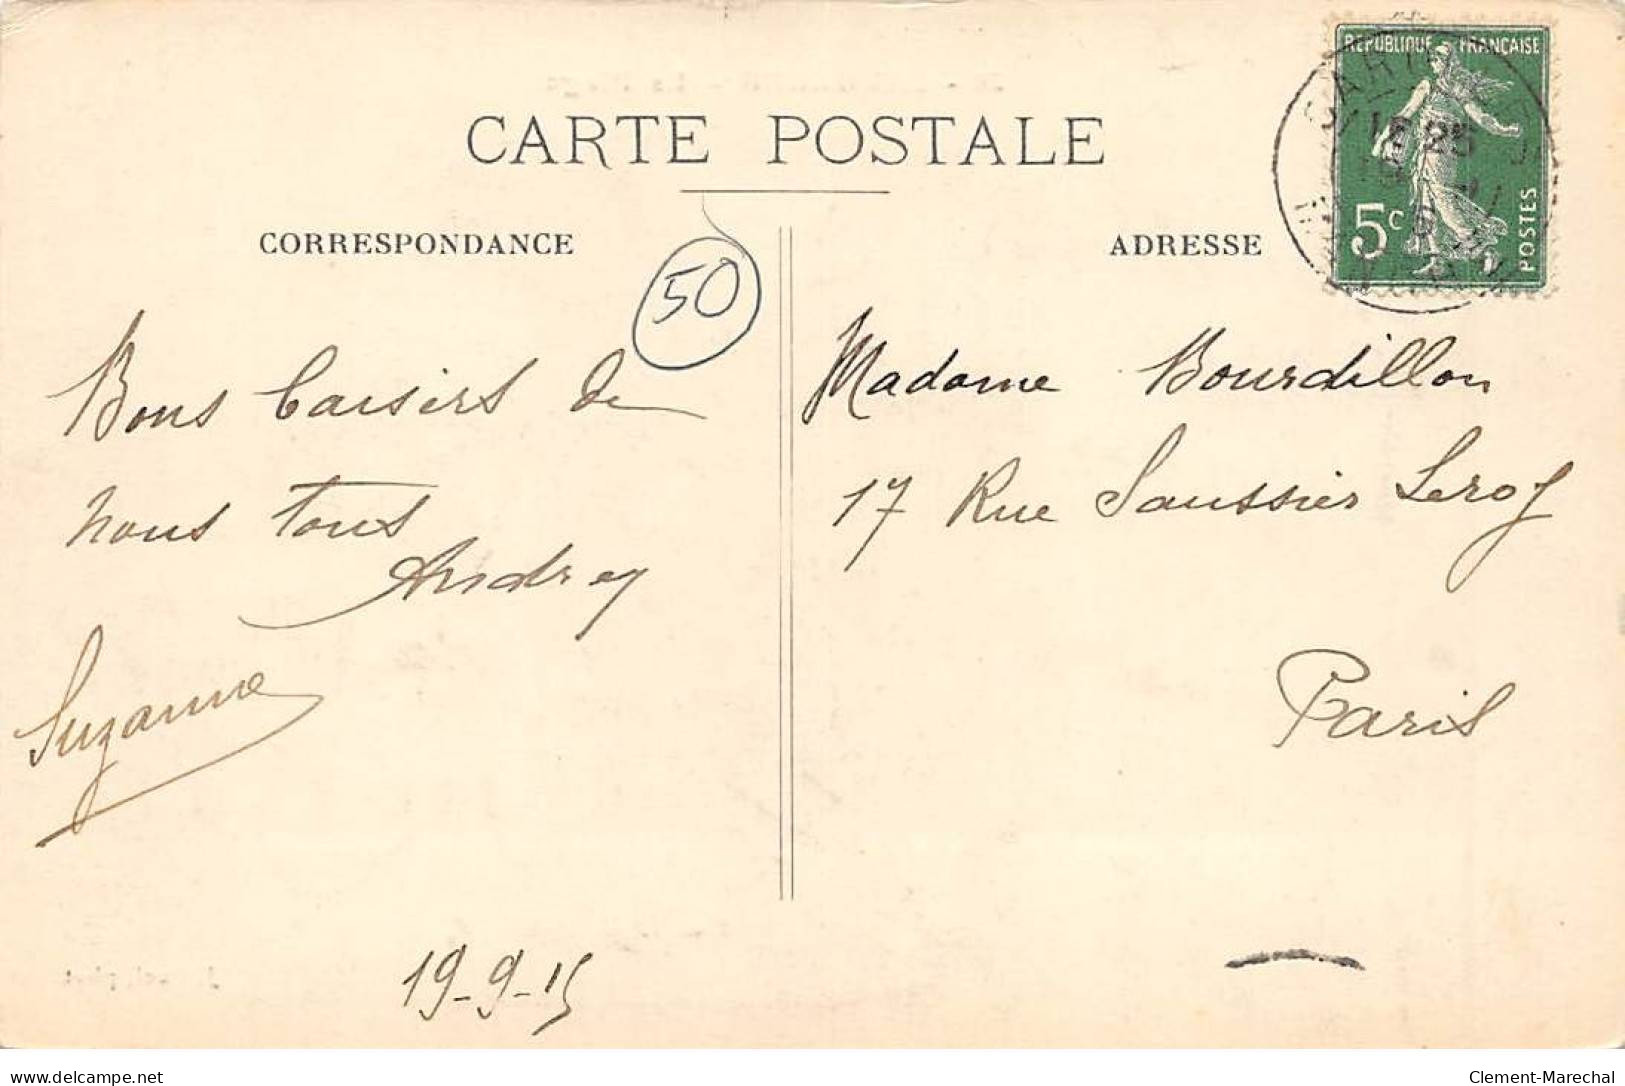 CARTE POSTALE
CORRESPONDANCE
ADRESSE
REPUBLIQUE FRANÇAISE
5c
POSTES
50
Bons baisers de
nous tous
Andrey
Suzanne
19-9-15
Madame Bourdillon
17 Rue Saussier Leroy
Paris
delcampe.net
Clement-Marechal